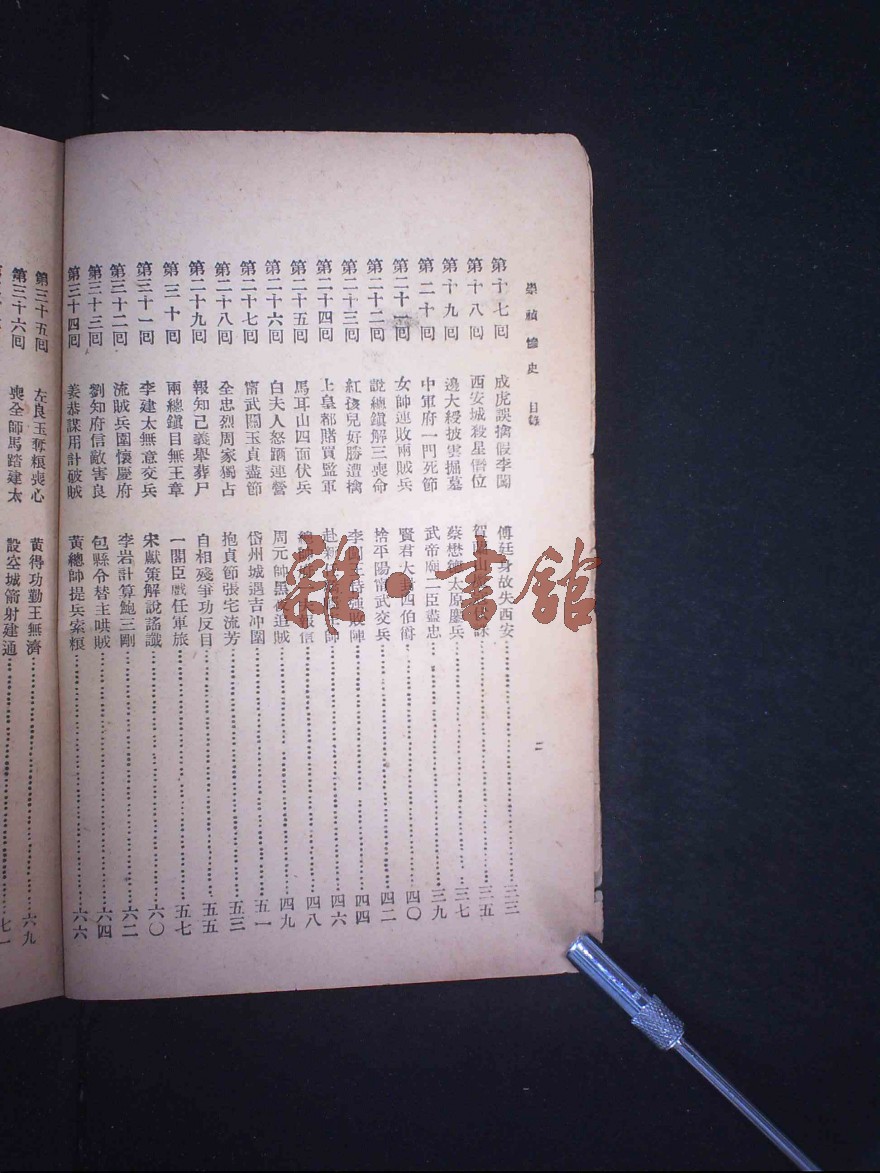 崇禎慘史 目錄
第十七回 成虎誤擒假李闖 傅廷身故失西安 三三
第十八回 西安城殺星僭位 賀山 三五
第十九回 邊大綬披雲掘墓 蔡懋德太原鏖兵 三七
第二十回 中軍府一門死節 武帝廟二臣盡忠 三九
第二十一回 女帥連敗兩賊兵 賢君大封四伯爵 四〇
第二十二回 說總鎮解三喪命 捨平陽甯武交兵 四二
第二十三回 紅孩兒好勝遭擒 李敗陣 四四
第二十四回 上皇都賭買監軍 赴新 四六
第二十五回 馬耳山四面伏兵 報信 四八
第二十六回 白夫人怒躧連營 周元帥黑夜追賊 四九
第二十七回 甯武關玉貞盡節 岱州城遇吉冲圍 五一
第二十八回 全忠烈周家獨占 抱貞節張宅流芳 五三
第二十九回 報知己義舉葬尸 自相殘爭功反目 五五
第三十回 兩總鎮目無王章 一閣臣戲任軍旅 五七
第三十一回 李建太無意交兵 宋獻策解說謠讖 六〇
第三十二回 流賊兵圍懷慶府 李岩計算鮑三剛 六二
第三十三回 劉知府信敵害良 包縣令替主哄賊 六四
第三十四回 姜恭謀用計破賊 黃總帥提兵索粮 六六
第三十五回 左良玉奪粮喪心 黃得功勤王無濟 六九
第三十六回 喪全師馬踏建太 設空城箭射建通 七一
二
雜·書館